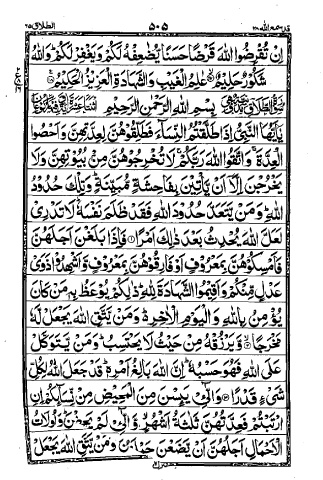 قد سمع الله ٢٨ ٥٠٥ الطلاق ٦٥
اِنْ تُقْرِضُوا اللّٰهَ قَرْضًا حَسَنًا یُّضٰعِفْهُ لَكُمْ وَیَغْفِرْ لَكُمْ ؕ وَاللّٰهُ
شَكُوْرٌ حَلِیْمٌ عٰلِمُ الْغَیْبِ وَالشَّهَادَةِ الْعَزِیْزُ الْحَكِیْمُ
بِسْمِ اللّٰهِ الرَّحْمٰنِ الرَّحِیْمِ
یٰۤاَیُّهَا النَّبِیُّ اِذَا طَلَّقْتُمُ النِّسَآءَ فَطَلِّقُوْهُنَّ لِعِدَّتِهِنَّ وَاَحْصُوا
الْعِدَّةَ ۚ وَاتَّقُوا اللّٰهَ رَبَّكُمْ ۚ لَا تُخْرِجُوْهُنَّ مِنْۢ بُیُوْتِهِنَّ وَلَا
یَخْرُجْنَ اِلَّاۤ اَنْ یَّاْتِیْنَ بِفَاحِشَةٍ مُّبَیِّنَةٍ ؕ وَتِلْكَ حُدُوْدُ
اللّٰهِ ؕ وَمَنْ یَّتَعَدَّ حُدُوْدَ اللّٰهِ فَقَدْ ظَلَمَ نَفْسَهٗ ؕ لَا تَدْرِیْ
لَعَلَّ اللّٰهَ یُحْدِثُ بَعْدَ ذٰلِكَ اَمْرًا ۱ فَاِذَا بَلَغْنَ اَجَلَهُنَّ
فَاَمْسِكُوْهُنَّ بِمَعْرُوْفٍ اَوْ فَارِقُوْهُنَّ بِمَعْرُوْفٍ وَّاَشْهِدُوْا ذَوَیْ
عَدْلٍ مِّنْكُمْ وَاَقِیْمُوا الشَّهَادَةَ لِلّٰهِ ؕ ذٰلِكُمْ یُوْعَظُ بِهٖ مَنْ كَانَ
یُؤْمِنُ بِاللّٰهِ وَالْیَوْمِ الْاٰخِرِ ؕ وَمَنْ یَّتَّقِ اللّٰهَ یَجْعَلْ لَّهٗ
مَخْرَجًا ۲ وَّیَرْزُقْهُ مِنْ حَیْثُ لَا یَحْتَسِبُ ؕ وَمَنْ یَّتَوَكَّلْ
عَلَی اللّٰهِ فَهُوَ حَسْبُهٗ ؕ اِنَّ اللّٰهَ بَالِغُ اَمْرِهٖ ؕ قَدْ جَعَلَ اللّٰهُ لِكُلِّ
شَیْءٍ قَدْرًا ۳ وَالّٰٓـِٔیْ یَئِسْنَ مِنَ الْمَحِیْضِ مِنْ نِّسَآئِكُمْ اِنِ
ارْتَبْتُمْ فَعِدَّتُهُنَّ ثَلٰثَةُ اَشْهُرٍ ۙ وَّالّٰٓـِٔیْ لَمْ یَحِضْنَ ؕ وَاُولَاتُ
الْاَحْمَالِ اَجَلُهُنَّ اَنْ یَّضَعْنَ حَمْلَهُنَّ ؕ وَمَنْ یَّتَّقِ اللّٰهَ یَجْعَلْ